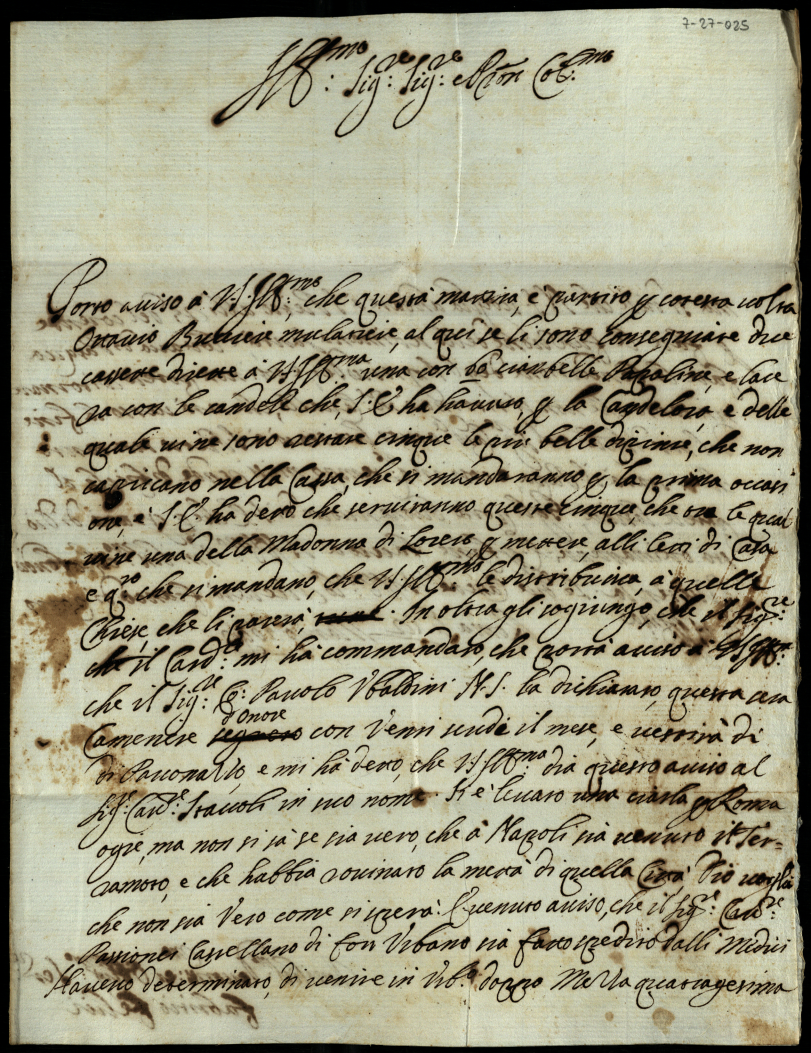 7-27-025
Ill.mo Sig.re Sig.re e Pron Col.mo
Porto auiso à V.S. Ill.ma, che questa matina, è partito p cotesta uolta
Ottauio mulatiere, al qui se li sono consegniate due
cassette dirette à V.S. Ill.ma una con ciambelle Papaline, e l'alt
ra con le candele che, S.E. ha hauuto, p la Candelora, e delle
quali uine sono restate cinque le più belle dipinte, che non
capiuano nella Cassa, che si mandaranno p la prima occasi
one, e S.E. ha detto che seruiranno queste cinque, che tra le qual
uine una della Madonna di Loreto, p mettere, alli letti di Casa
e q.to che si mandano, che V.S. Ill.ma le distribuisca, à quelle
Chiese, che li parerà, . In oltra gli sogiungo, che il Sig.re
che il Card.le mi hà commandato, che porti auiso à V.S. Ill.ma
che il Sig.re Pauolo Vbaldini N.S. la dichiarato, questa sera
Cameriere segreto d'onore con Venti scudi il mese, e uestirà di
di Pauonazzo, e mi hà detto, che V.S. Ill.ma dia questo auiso al
Sig.re Cau.re Staccoli in suo nome. Si è leuato una ciarla p Roma
ogie, ma non si sà se sia uero, che à Napoli sia uenuto il Ter-
ramoto, e che habbia rouinato la metà di quella Città Dio uoglia
che non sia Vero come si spera. E uenuto auiso, che il Sig.re Cau.re
Passionei Castellano di Fort Vrbano sia fatto spedito dalli Medici
Haueuo determinato, di uenire in Vrb.o doppo Mezza quaragesima